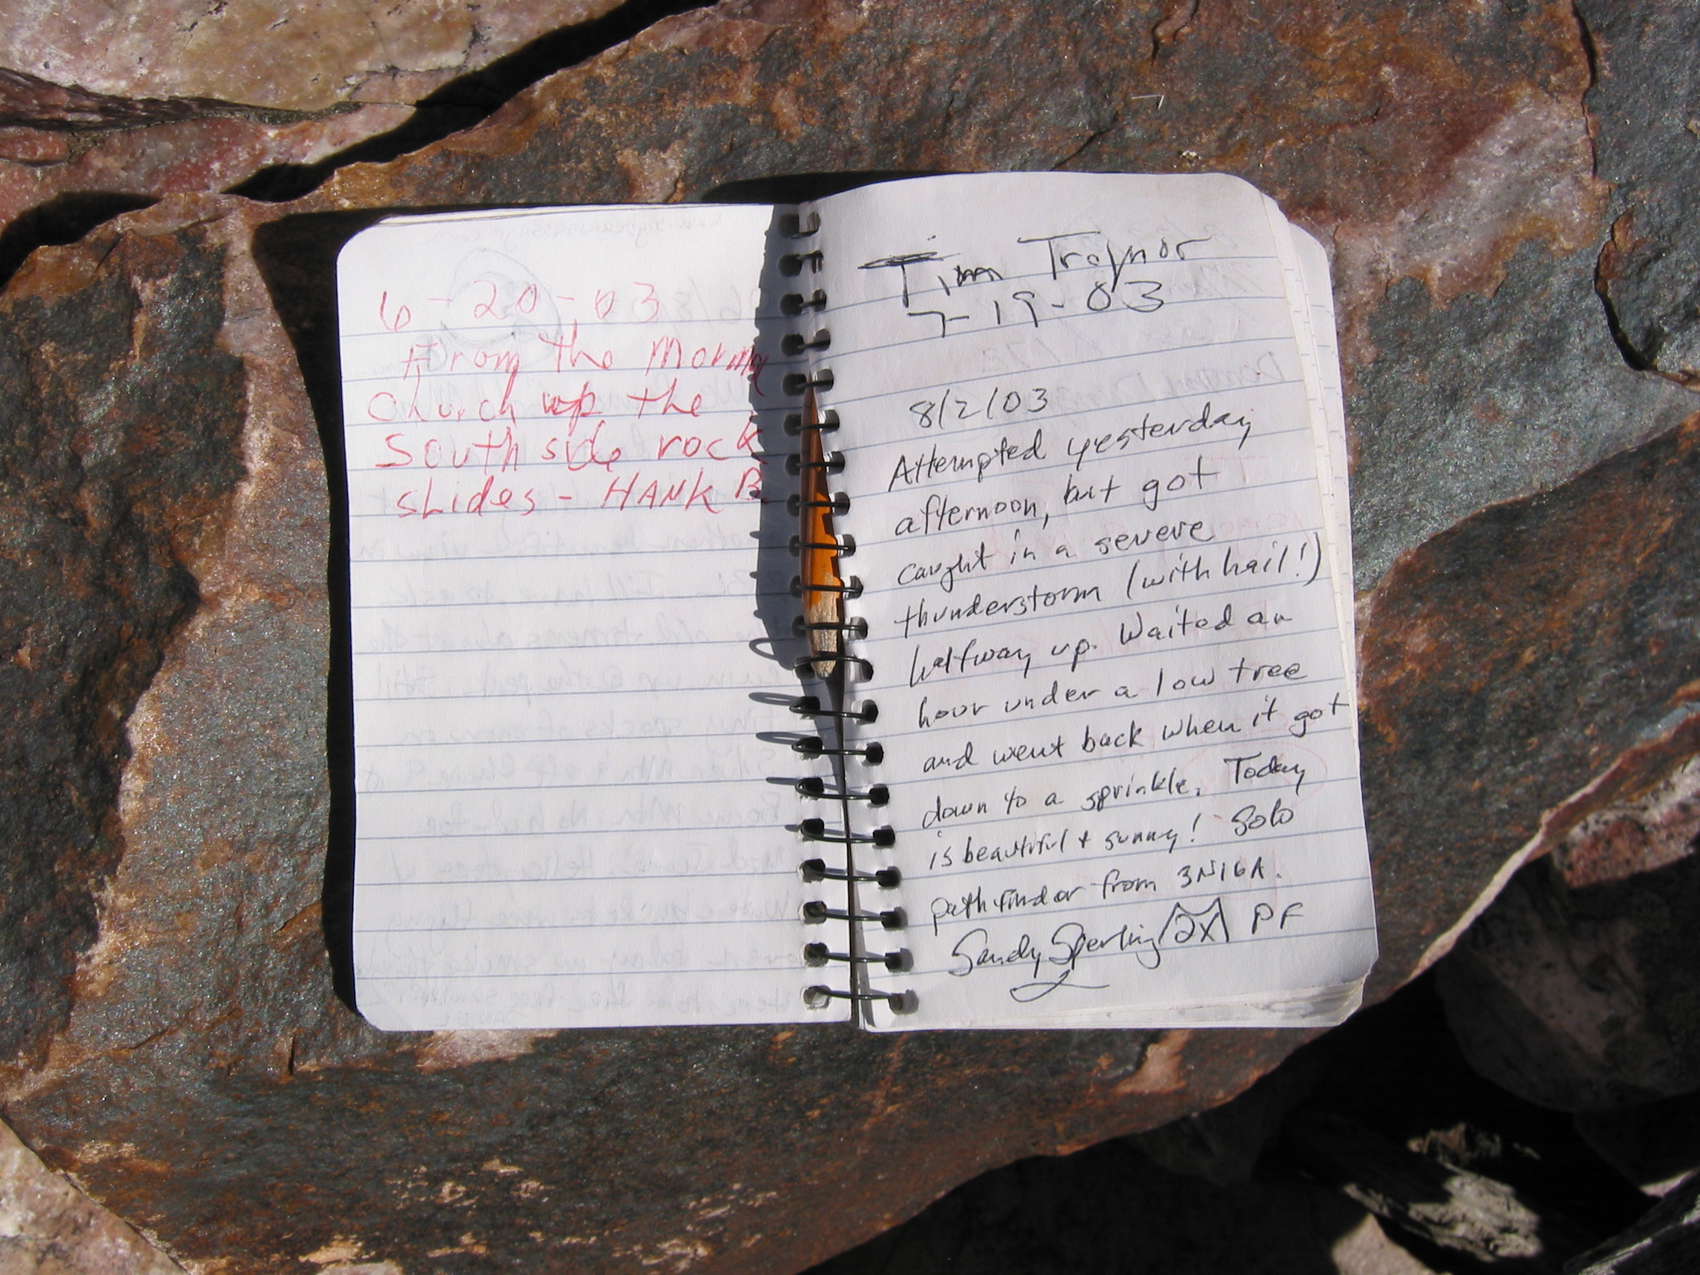 6-20-03
From the Mormon
church up the
South side rock
slides - HANK B
Tim Traynor
7-19-03
8/2/03
Attempted yesterday
afternoon, but got
caught in a severe
thunderstorm (with hail!)
halfway up. Waited an
hour under a low tree
and went back when it got
down to a sprinkle. Today
is beautiful + sunny! Solo
pathfinder from 3N16A.
Sandy Sperling 2X PF